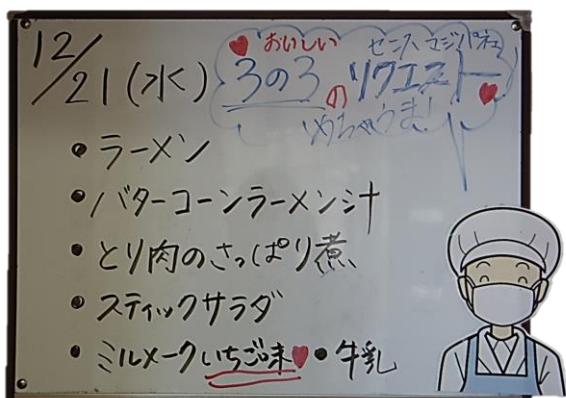 12/21(水)
おいしい
センスマジパネェ
3の3のリクエスト
めちゃうま!
・ラーメン
・バターコーンラーメン汁
・とり肉のさっぱり煮
・スティックサラダ
・ミルメークいちご味♥ ・牛乳